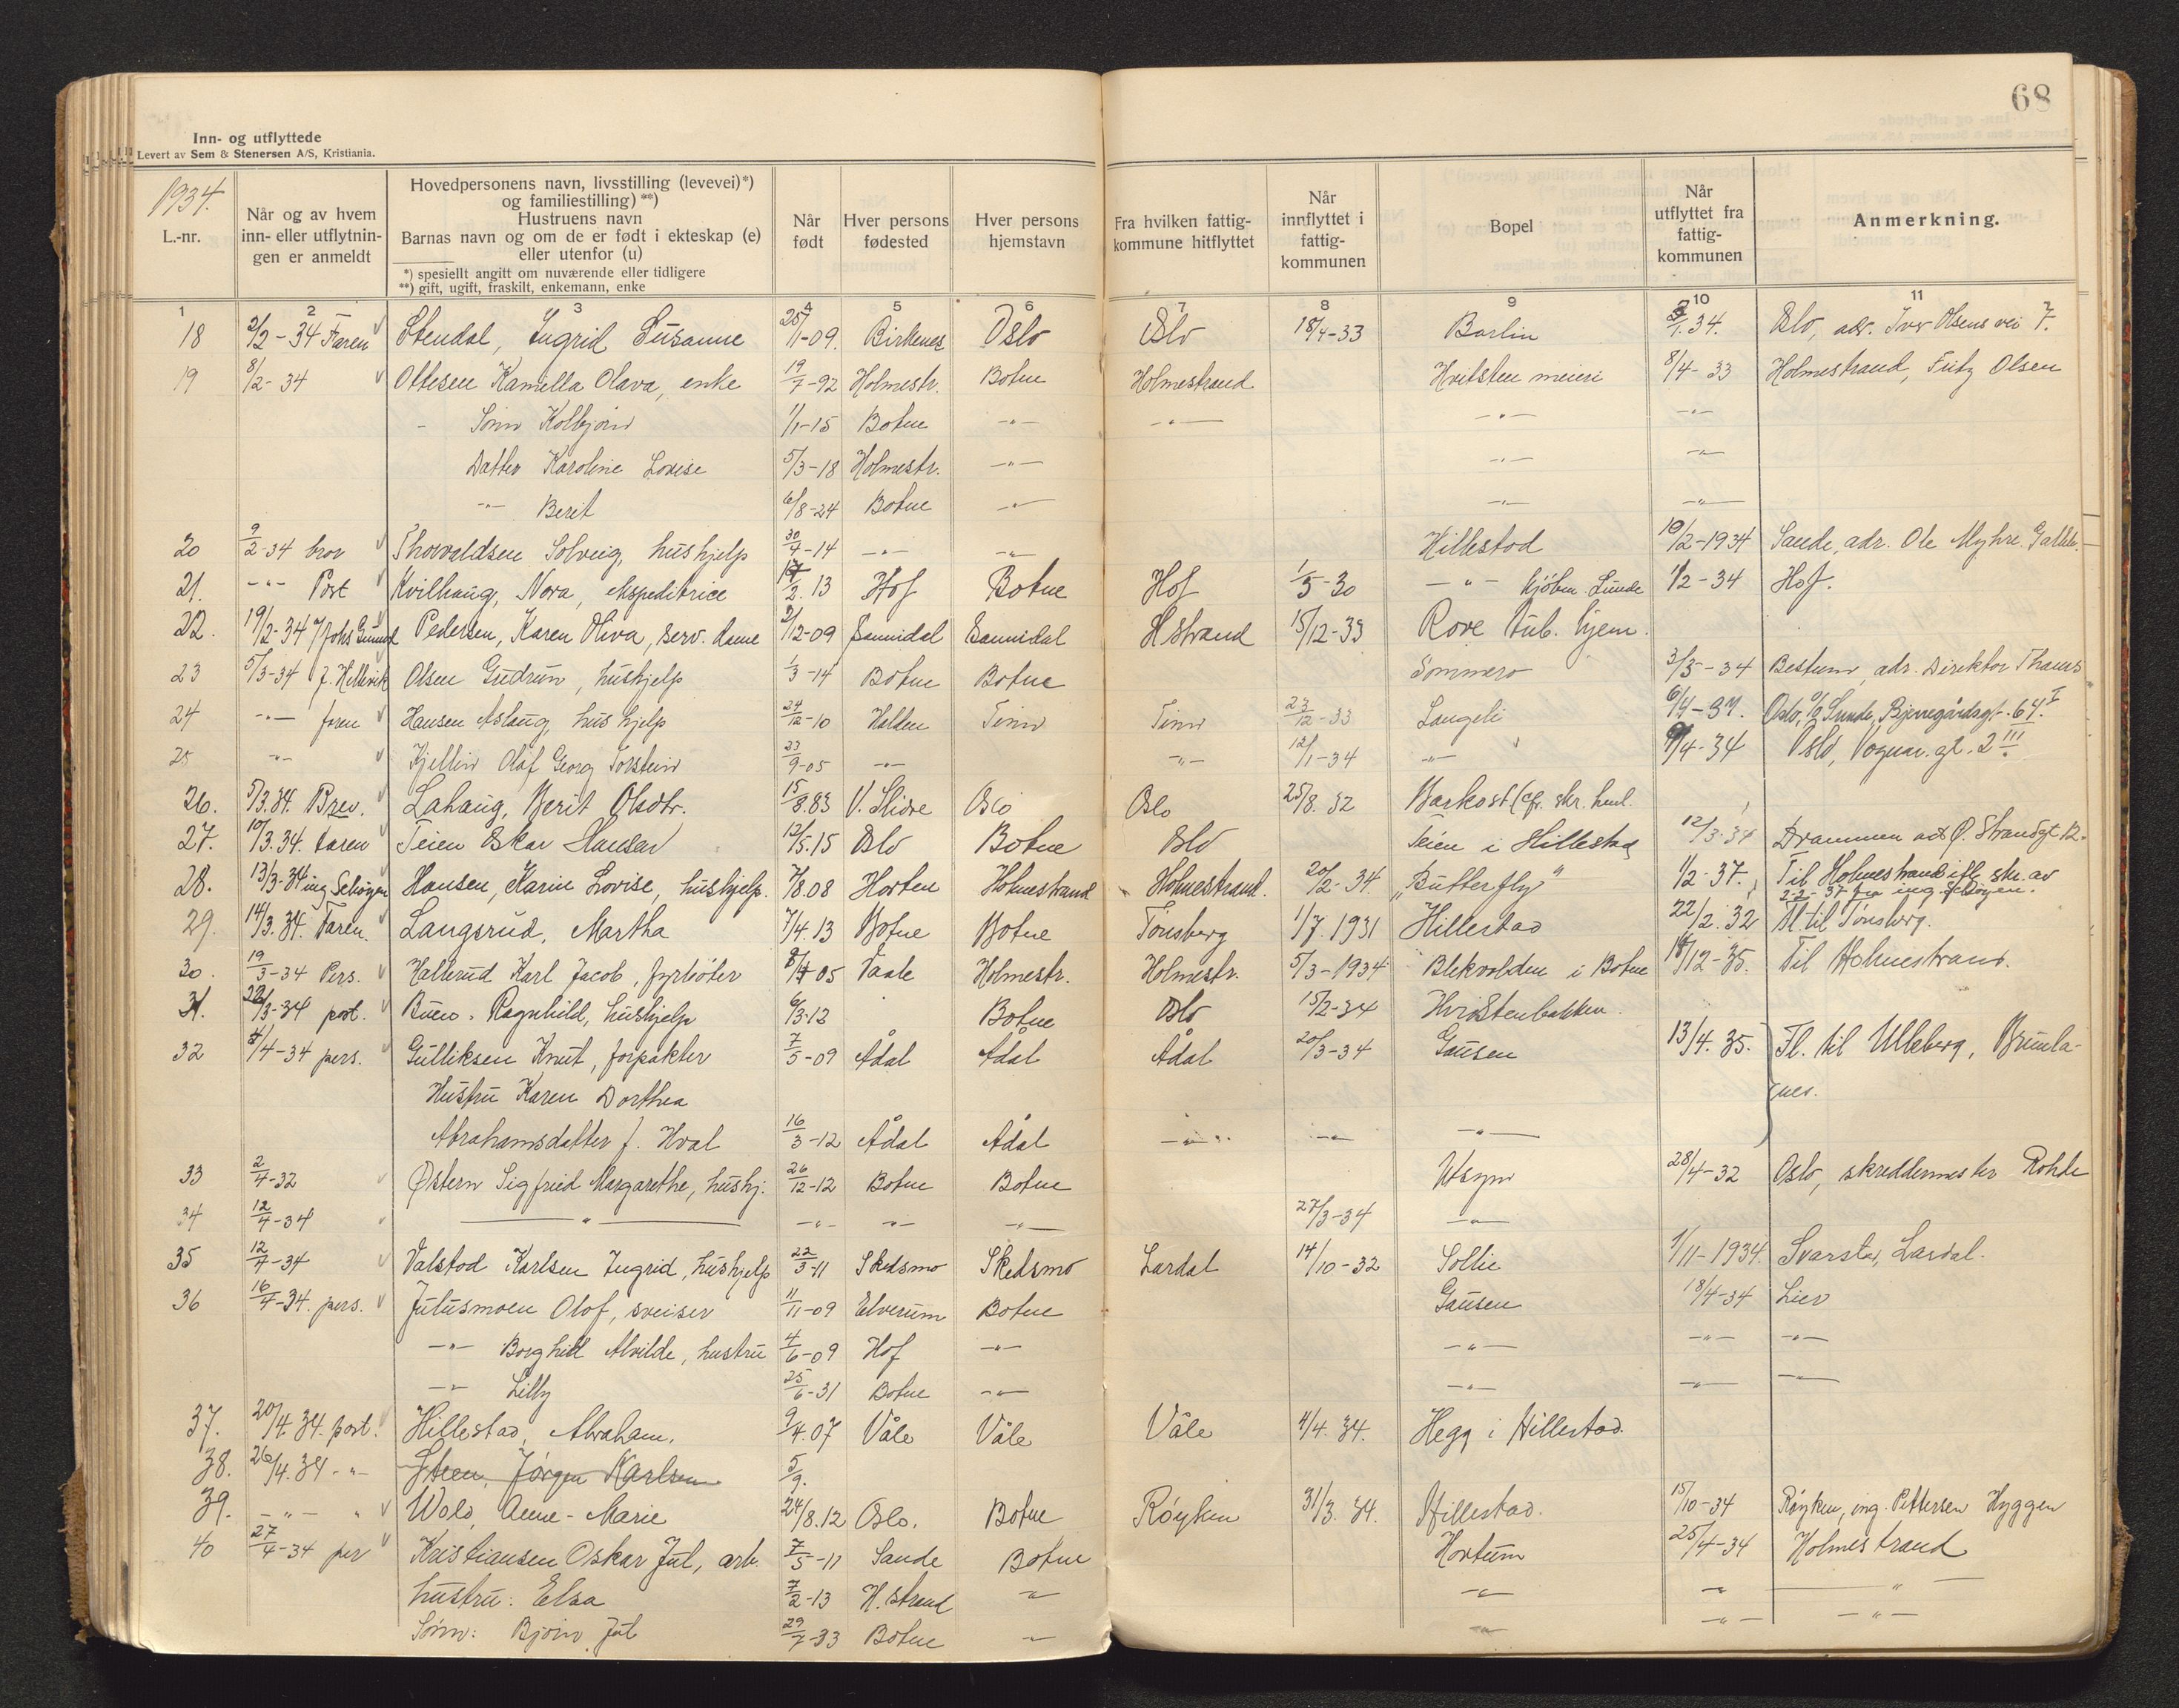 68
Inn- og utflyttede
Levert av Sem & Stenersen A/S, Kristiania.
1934.
L.-nr.
Når og av hvem inn- eller utflytnin-gen er anmeldt
Hovedpersonens navn, livsstilling (levevei)*) og familiestilling)**)
Hustruens navn
Barnas navn og om de er født i ekteskap (e) eller utenfor (u)
*) spesiellt angitt om nuværende eller tidligere
**) gift, ugift, fraskilt, enkemann, enke
Når født
Hver persons fødested
Hver persons hjemstavn
Fra hvilken fattig-kommune hitflyttet
Når innflyttet i fattig-kommunen
Bopel
Når utflyttet fra fattig-kommunen
Anmerkning.
1 2 3 4 5 6 7 8 9 10 11
18 2/2-34 Faren Stendal, Ingrid Susanne 25/11-09. Birkenes Oslo Oslo 18/4-33 Barlin 3/1.34. Oslo, adr. Iver Olsens vei 7.
19 8/2-34 Ottesen Kamilla Olava, enke 19/7-92 Holmestr. Botne Holmestrand Hvitsten meieri 8/4-33 Holmestrand, Fritz Olsen
- Sønn Kolbjørn 1/1-15 Botne -"- -"- -"- -"-
Datter Karoline Lovise 5/3-18 Holmestr. -"- -"- -"-
-"- Berit 6/8-24 Botne -"- -"- -"-
20 9/2-34 brev Thorvaldsen Solveig, hushjelp 30/4-14 -"- -"- Hillestad 10/2-1934 Sande, adr. Ole Myhre
21. -"- Post Kvilhaug, Nora, ekspeditrice 17/2.13 Hof Botne Hof 1/5-30 -"- kjøbm. Lunde 1/2-34 Hof.
22. 19/2-34 Pedersen, Karen Oliva, serv. dame 2/12-09 Sannidal Sannidal Hstrand 15/12-33 Rove tub. hjem.
23 5/3-34 J. Hillevik Olsen Gudrun, hushjelp 1/3-14 Botne Botne Sommero 3/3-34 Bestum, adr. Direktør Thams
24 -"- faren Hansen Aslaug, hushjelp 24/12-10 Halden Tinn Tinn 23/12-33 Langeli 6/4-34. Oslo, c/o Lunde, Bjerregårdsgt. 64.I
25 -"- Kjellin Olaf Georg Torstein 23/9-05 -"- -"- 12/1-34 -"- 9/4-34 Oslo, Vognm. gt. 2 III
26. 5/3.34. Brev. Lahaug, Berit Olsdtr. 15/8.83 V. Slidre Oslo Oslo 25/8.32 Barkost (cfr. skr. henl.
27. 10/3.34. Faren Teien Oskar Hansen 12/5.15 Oslo Botne Oslo Teien i Hillestad 12/3-34 Drammen adr. Ø. Strandgt 12.
28. 13/3-34 ing Schøyen Hansen, Karin Lovise, hushjelp. 7/8.08 Horten Holmestrand Holmestrand. 20/2-34. "Butterfly" 1/2-37. Til Holmestrand ifl. skr. av
2-2-37 fra ing. Schøyen.
29. 14/3.34. Faren. Langsrud, Martha 7/4.13 Botne Botne Tønsberg 1/7.1931 Hillestad 22/2.32 Fl. til Tønsberg.
30. 19/3-34 Pers. Hallerud Karl Jacob, fyrbøter 8/4 05 Vaale Holmestr. Holmestr. 5/3-1934 Blekvolden i Botne 18/12-35. Til Holmestrand.
31. 22/3-34 post. Buen. Ragnhild, hushjelp 6/3-12 Botne Oslo 15/2-34 Hvitstenbakken.
32 4/4-34 pers. Gulliksen Knut, forpakter 7/5-09 Ådal Ådal Ådal 20/3-34 Gausen 13/4.35. Fl. til Ulleberg, Brunla-
Hustru Karen Dorthea nes.
Abrahamsdatter f. Hval 16/3-12 Ådal Ådal -"- -"- -"-
33 2/4-32 Østern Sigfried Margarethe, hushj. 26/12-12 Botne Botne Utsyn 28/4-32 Oslo, skreddermester Rohde
34 12/4-34 -"- -"- -"- -"- 27/3-34 -"-
35 12/4-34 Valstad Karlsen Ingrid, hushjelp 22/3-11 Skedsmo Skedsmo Lardal 14/10-32 Sollie 1/11-1934. Svarstad, Lardal.
36 16/4-34. pers. Julusmoen Olof, sveiser 11/11-09 Elverum Botne Gausen 18/4-34 Lier
-"- Borghild Alvilde, hustru 4/6-09 Hof -"- -"- -"- -"-
-"- Lilly 25/6-31 Botne -"- -"- -"- -"-
37. 20/4.34. post. Hillestad, Abraham. 9/4.07 Våle Våle Våle 4/4.34. Hegg i Hillestad.
38. 26/4.34 -"- Steen, Jørgen Karlsen 5/9.
39. -"- " Wold, Anne-Marie 24/8.12 Oslo. Botne Røyken 31/3.34. Hillestad. 15/10-34 Røyken, ing. Pettersen Hyggen
40 27/4-34 per Kristiansen Oskar Jul, arb. 7/5-11 Sande Botne Hortum 25/4-34 Holmestrand
hustru: Elsa 7/2-13 H.strand -"- -"- -"- -"-
Sønn: Bjørn Jul 29/7-33 Botne -"- -"- -"- -"-